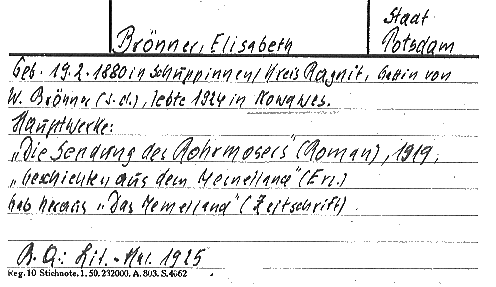 Stadt
Brönner, Elisabeth Potsdam
Geb. 19.2.1880 in Schuppinnen / Kreis Ragnit, Gattin von
W. Brönner (s.d.), lebte 1924 in Nowawes.
Hauptwerke:
„Die Sendung des Rohrmosers" (Roman), 1919,
„Geschichten aus dem Memelland" (Erz.)
gab heraus „Das Memelland" (Zeitschrift)
B.Q.: Lit.-Kal. 1925
Reg. 10 Stichnote. 1. 50. 232000. A. 803. S. 4662